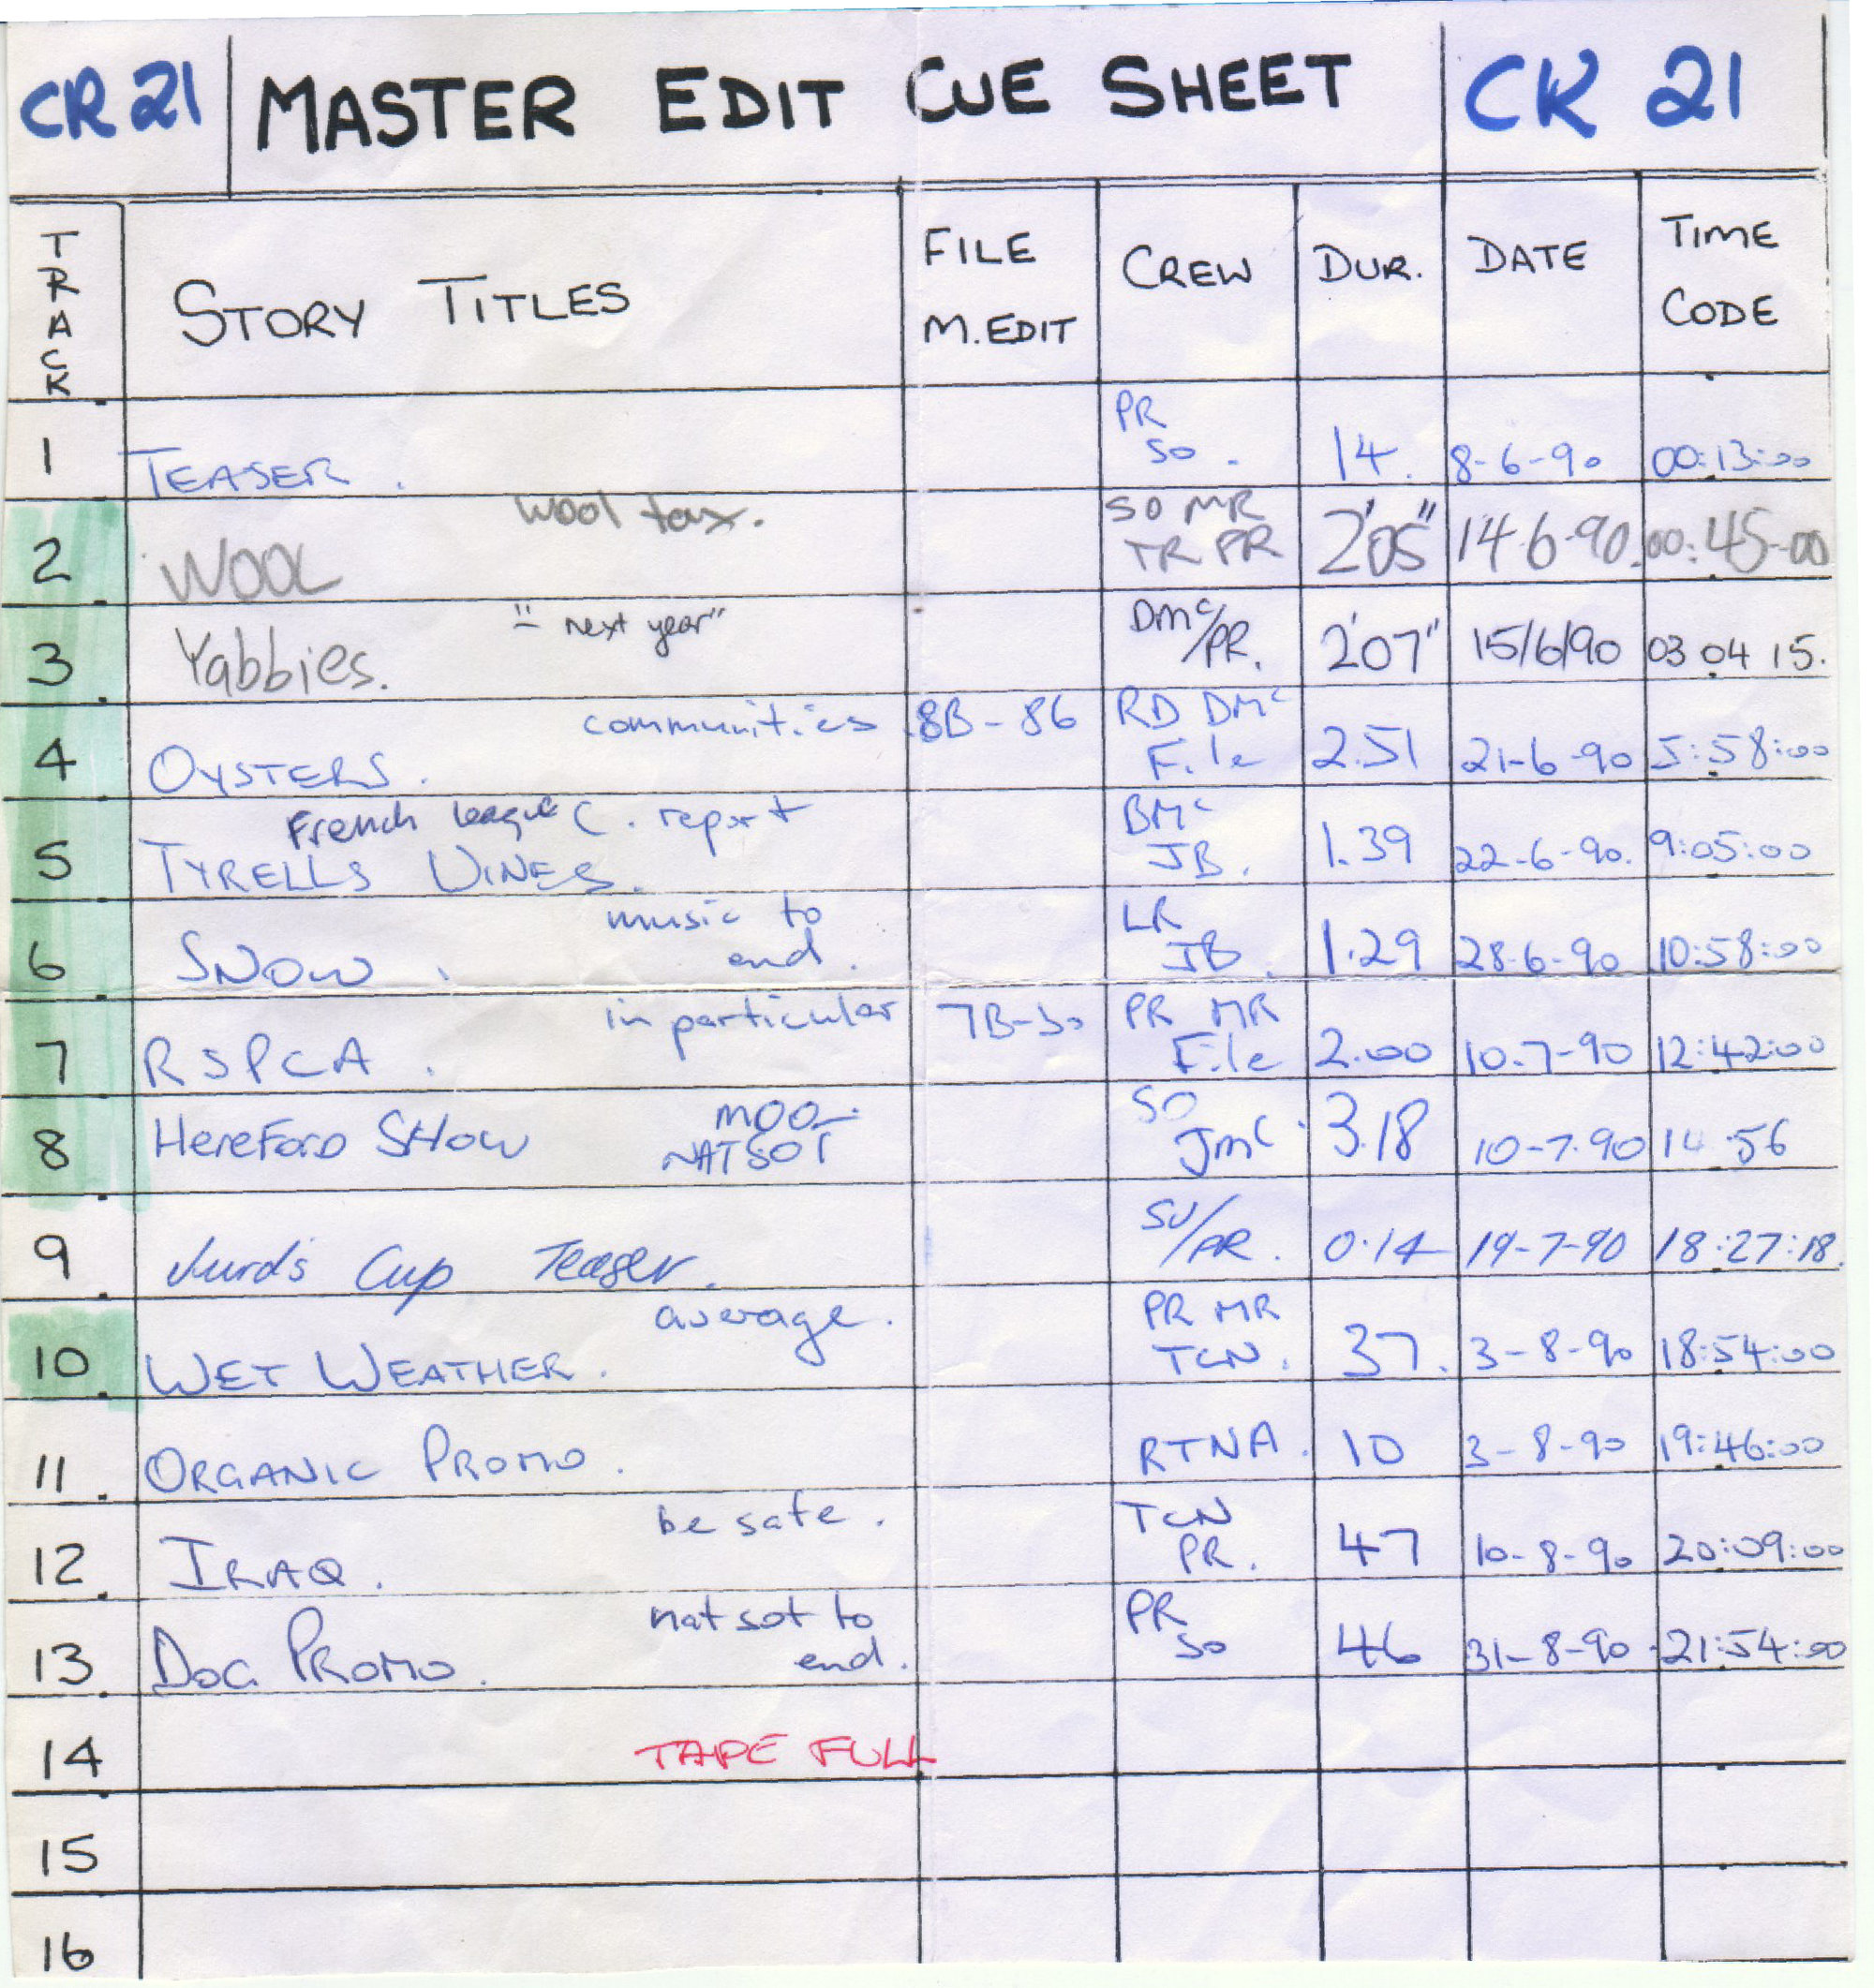 CR 21 MASTER EDIT CUE SHEET CR 21
TRACK STORY TITLES FILE M.EDIT CREW DUR. DATE TIME CODE
1 TEASER. PR SO. 14. 8-6-90 00:13:00
2 WOOL wool tax. SO MR TR PR 2'05" 14-6-90. 00:45-00
3 Yabbies. "- next year" DMc/PR. 2'07" 15/6/90 03 04 15.
4 OYSTERS. communities 8B-86 RD DMc File 2.51 21-6-90 5:58:00
5 TYRELLS VINES. French league C. report BMc JB. 1.39 22-6-90. 9:05:00
6 SNOW. music to end. LR JB. 1.29 28-6-90 10:58:00
7 RSPCA. in particular 7B-30 PR MR File 2.00 10-7-90 12:42:00
8 HEREFORD SHOW MOO- NATSOT SO JMc 3.18 10-7-90 14 56
9 Jurd's Cup Teaser. SV/PR. 0.14 19-7-90 18:27:18.
10 WET WEATHER. average. PR MR TCN. 37. 3-8-90 18:54:00
11 ORGANIC PROMO. RTNA. 10 3-8-90 19:46:00
12 IRAQ. be safe. TCN PR. 47 10-8-90 20:09:00
13 DOG PROMO. natsot to end. PR SO 46 31-8-90 21:54:00
14 TAPE FULL
15
16